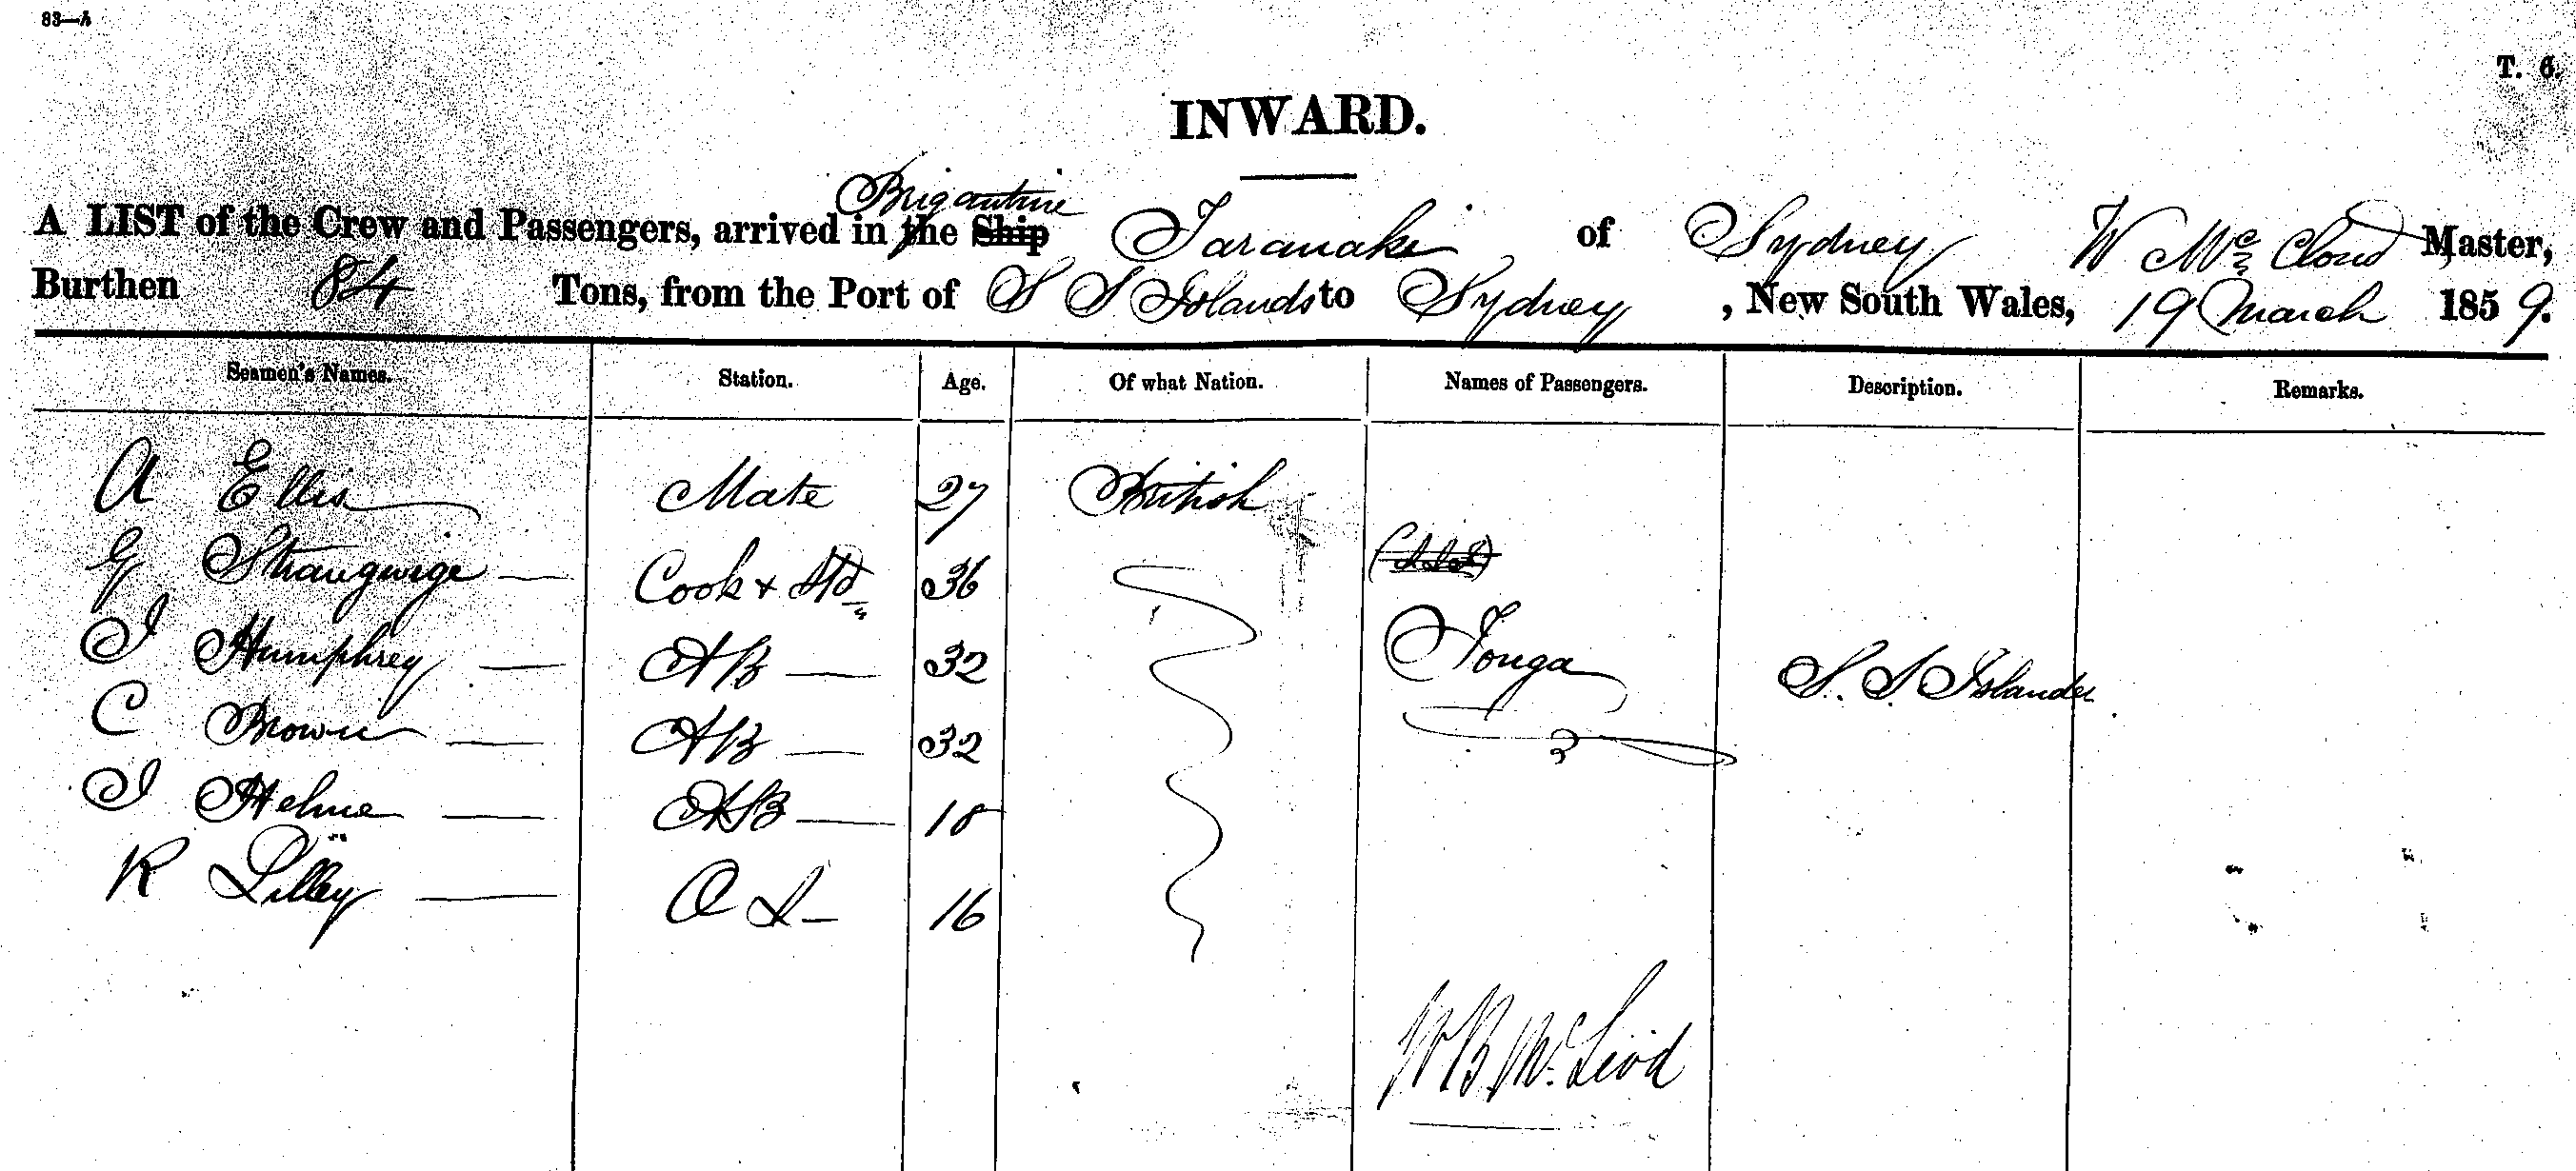 83—A
T. 6.
INWARD.
Brigantine
A LIST of the Crew and Passengers, arrived in the Ship Taranaki of Sydney W McCloud Master,
Burthen 84 Tons, from the Port of S S Islands to Sydney, New South Wales, 19 March 1859.
Seamen's Names. Station. Age. Of what Nation. Names of Passengers. Description. Remarks.
A Ellis Mate 27 British
G Strangwige Cook & Std 36
J Humphrey AB 32 Tonga S. S. Islander
C Brown AB 32
J Helme AB 18
R Lilley O S 16
W B McLeod